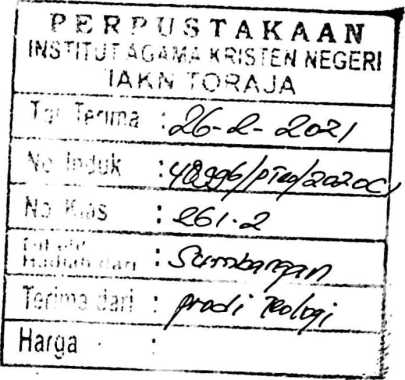 PERPUSTAKAAN
INSTITUT AGAMA KRISTEN NEGERI
IAKN TORAJA
Tgl Terima : 26-2-2021
No Induk :
No Klas : 261.2
Hadiah dari : Sumbangan
Terima dari : prodi Teologi
Harga :